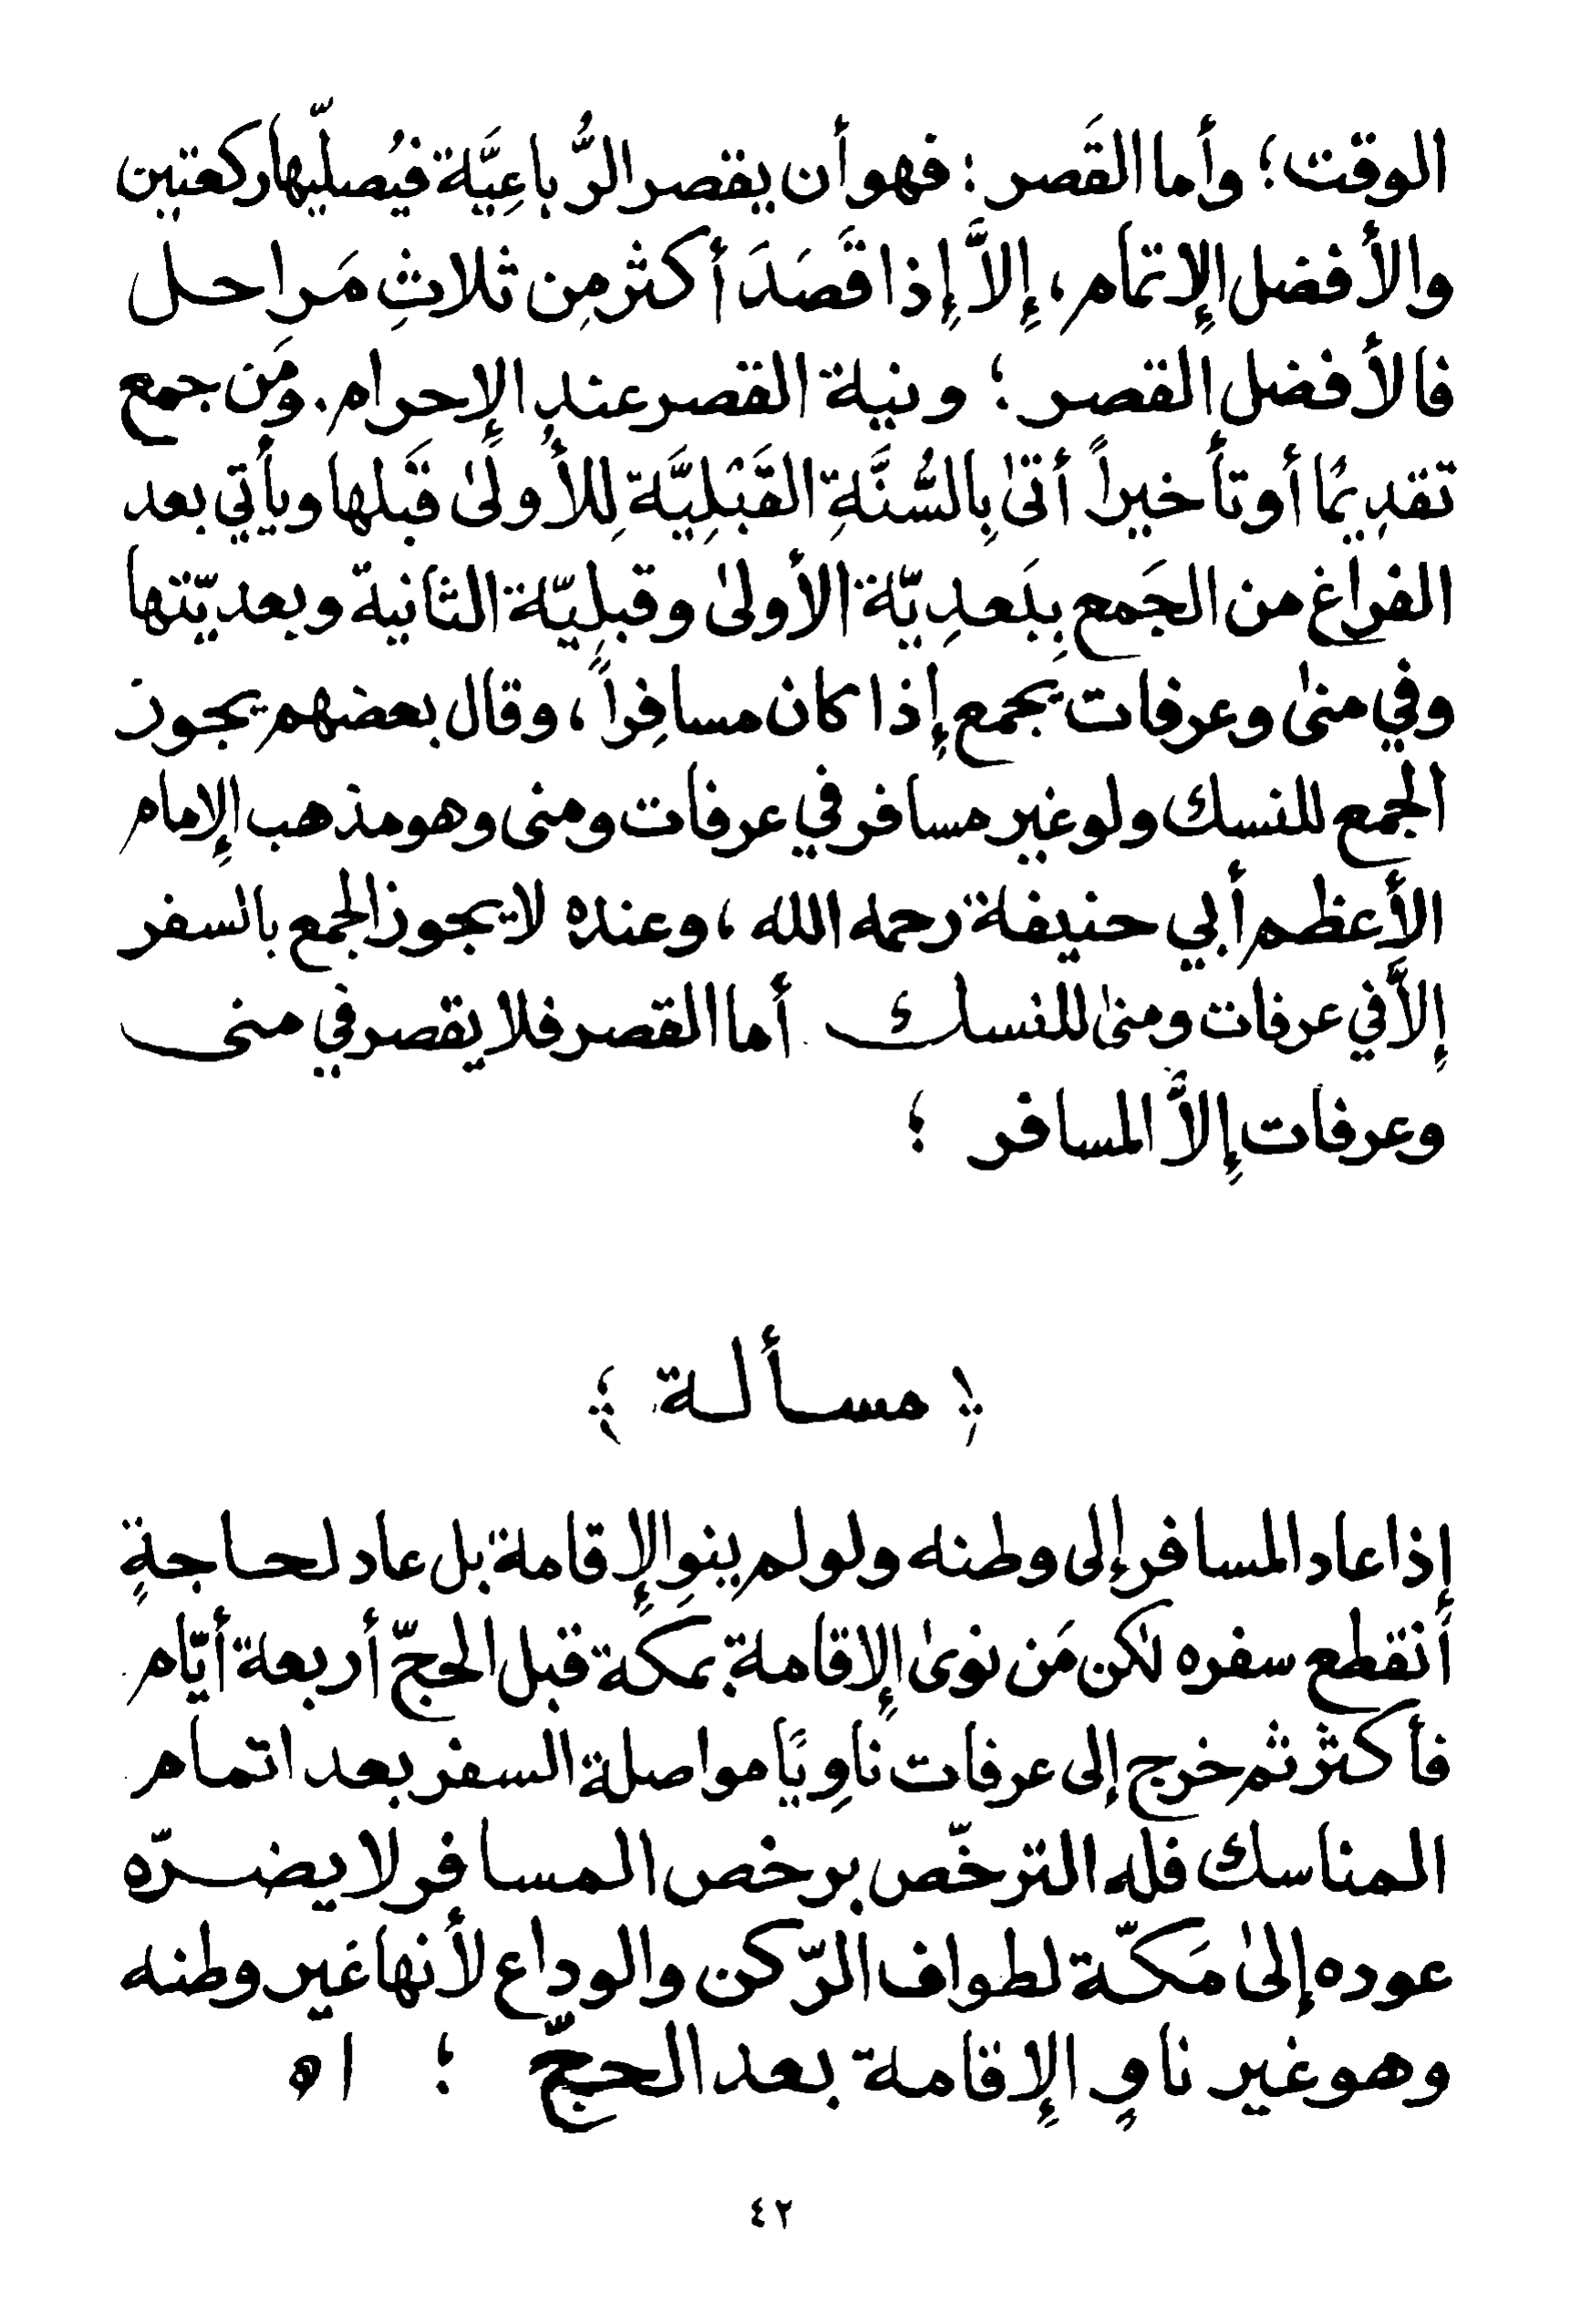 الوقت؛ وأما القَصر: فهو أن يقصر الرُّباعِيَّة فيُصلّيها ركعتين
والأفضل الإتمام، إِلاَّ إِذا قَصَدَ أكثر مِن ثلاثِ مَراحل
فالأفضل القصر؛ ونية القصر عند الإحرام. ومَن جمع
تقديمًا أو تأخيراً أتىٰ بِالسُّنَّةِ القَبْلِيَّة لِلأُولَىٰ قَبلها ويأتي بعد
الفراغ من الجَمع بِبَعدِيّة الأولىٰ وقبلِيّة الثانية وبعديّتها
وفي منىٰ وعرفات يجمع إِذا كان مسافِراً، وقال بعضهم يجوز
الجمع للنسك ولو غير مسافر في عرفات ومنى وهو مذهب الإمام
الأعظم أبي حنيفة رحمه الله، وعنده لا يجوز الجمع بالسفر
إِلاَّ في عرفات ومنىٰ للنسك. أما القصر فلا يقصر في منى
وعرفات إِلاَّ المسافر؛
﴿ مسألة ﴾
إِذا عاد المسافر إلى وطنه ولو لم ينوِ الإقامة بل عاد لحاجةٍ
أنقطع سفره لٰكن مَن نوىٰ الإقامة بمكة قبل الحجّ أربعة أيّام
فأكثر ثم خرج إلى عرفات ناوِيًا مواصلة السفر بعد اتمام
المناسك فله الترخّص برخص المسافر لا يضرّه
عوده إلىٰ مَكّة لطواف الرّكن والوداع لأنها غير وطنه
وهو غير ناوٍ الإقامة بعد الحجّ؛ اه
٤٢